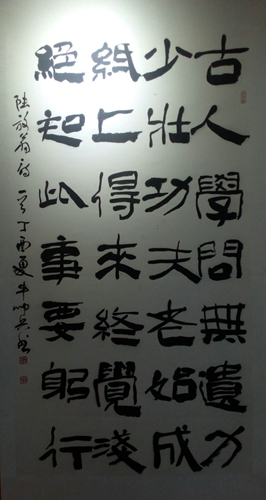 古人學問無遺力
少壯功夫老始成
紙上得來終覺淺
絕知此事要躬行
陸放翁詩一首丁酉夏牛